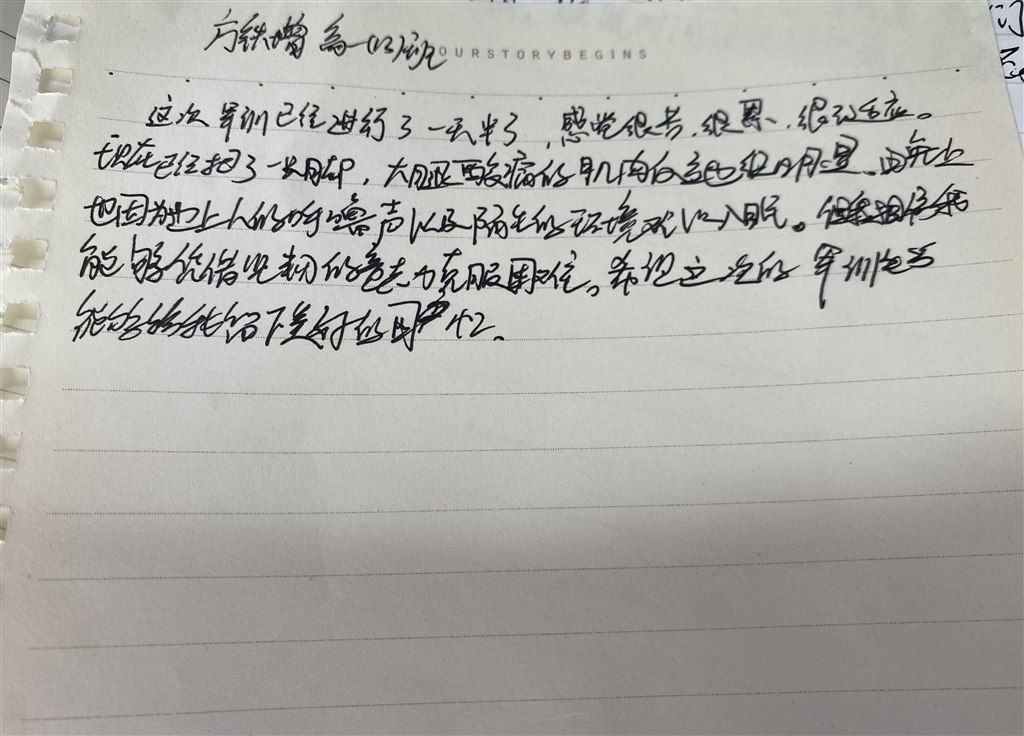 方铁增 高一(13)班
OURSTORYBEGINS
这次军训已经进行了一天半了，感觉很苦、很累、很不适应。
现在已经把了一大月却，大腿酸痛的肌肉反应也很明显，由每
也因为世上人的呼噜声以及陌生的环境难以入眠。但我相信我
能够凭借坚韧的意志力克服困难。希望这次的军训
能够给我留下美好的回忆。